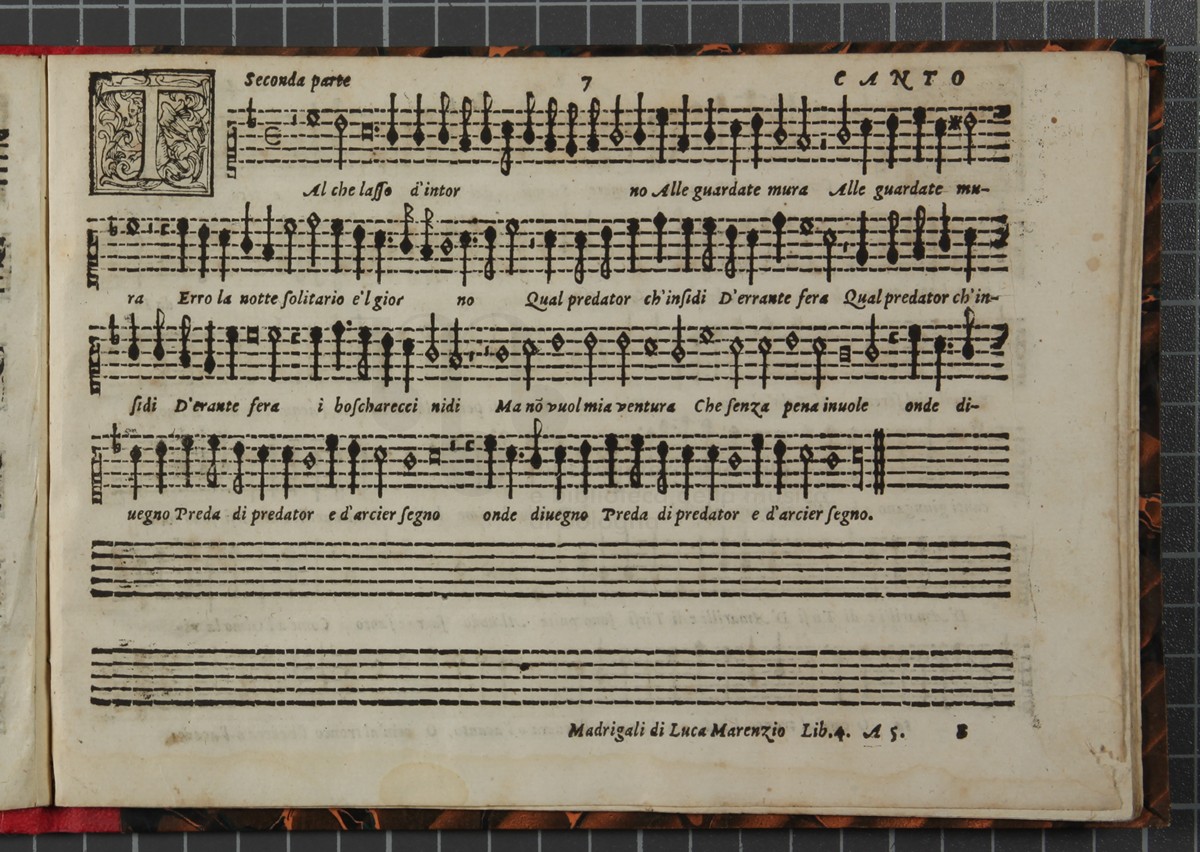 Seconda parte 7 CANTO
TAl che lasso d'intor no Alle guardate mura Alle guardate mu-
ra Erro la notte solitario e'l gior no Qual predator ch'insidi D'errante fera Qual predator ch'in-
sidi D'erante fera i boscharecci nidi Ma nō vuol mia ventura Che senza pena inuole onde di-
uegno Preda di predator e d'arcier segno onde diuegno Preda di predator e d'arcier segno.
Madrigali di Luca Marenzio Lib.4. A 5. B